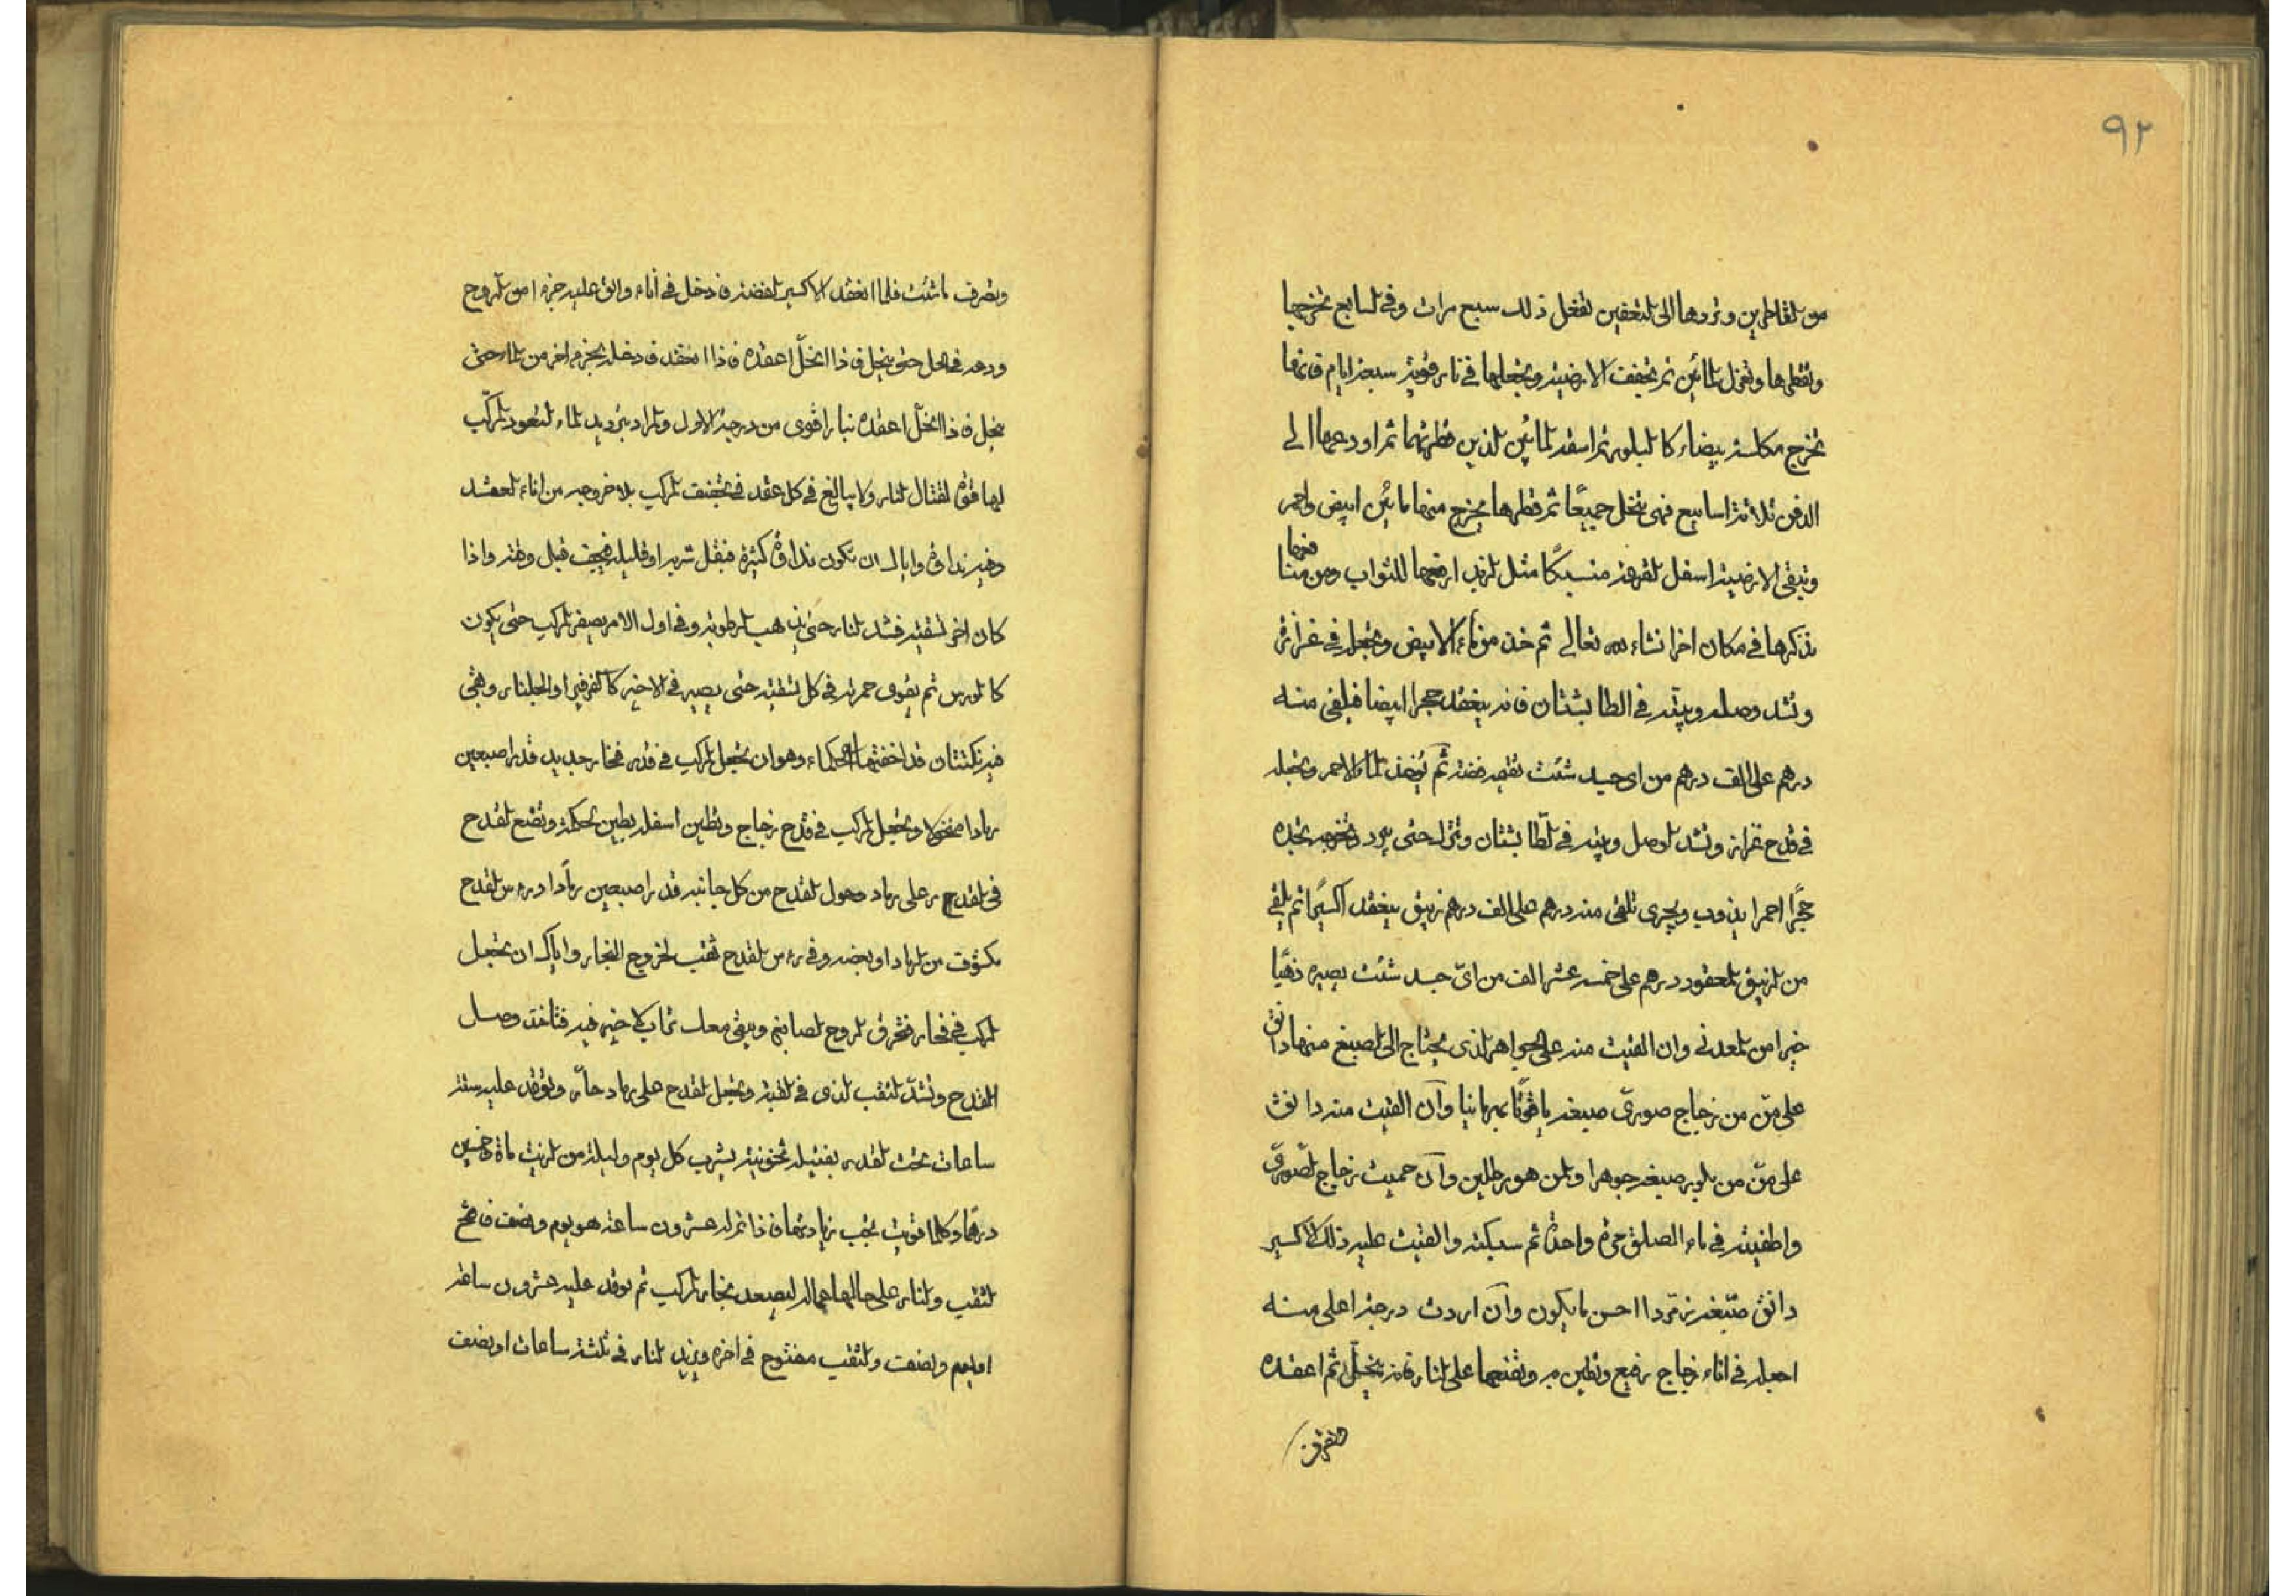 ٩٢
من القاطرين وتردها الى التعفين تفعل ذلك سبع مرات وفي السابع تخرجها
وتقطرها وتعزل المائين ثم تجفف الارضية وتجعلها في نار قوية سبعة ايام فانها
تخرج مكلسة بيضاء كالبلور ثم اسقه المائين الذين قطرتهما ثم اودعها الى
الدفن ثلاثة اسابيع فهي تنحل جميعًا ثم قطرها يخرج منها مائين ابيض واحمر
وتبقى الارضية اسفل القرعة منسبكًا مثل الزبد ارفعها للثواب ومن منها
نذكرها في مكان اخر انشاء الله تعالى ثم خذ من ماء الابيض وتجعل في
وتشد وصله وبيته في الطابشتان فانه ينعقد حجرا ابيضا فيلقى منه
درهم على الف درهم من اي جسد شئت يقيمه فضة ثم يؤخذ الماء الاحمر وتجعله
في قدح وتشد الوصل وبيته في الطابشتان وتنزل حتى يبرد وتخرجه تجده
حجرًا احمرا يذوب ويجري تلقى منه درهم على الف درهم زيبق ينعقد اكسيرًا ثم يلقى
من الزيبق المعقود درهم على خمسة عشر الف من اي جسد شئت يصيره ذهبًا
خيرا من المعدني وان القيت منه على الجواهر الذي يحتاج الى الصبغ منها دانق
على منّ من زجاج صوري صبغه ياقوتًا بهرمانيا وان القيت منه دانق
على منّ من بلور صبغه جوهرا والمن هو رطلين وان حميت زجاج الصوري
واطفيته في ماء الصلق مرة واحدة ثم سبكته والقيت عليه ذلك الاكسير
دانق صبغه زمردا احسن ما يكون وان اردت درجة اعلى منه
اجعله في اناء زجاج رفيع وتطين به وتضعها على النار فانه ينحل ثم اعقده
وتصرف ما شئت فلما انعقد الاكسير الفضة فادخل في اناء والق عليه جزء من الروح
ودعه في الحل حتى ينحل فاذا انحل اعقده فاذا انعقد فادخله بجزء اخر من الماء حتى
ينحل فاذا انحل اعقده بنار اقوى من درجة الاول والمراد بترديد الماء لتعود المركب
لها قوة لقتال النار ولا يبالغ في كل عقد في تجفيف المركب بلا خروجه من اناء العقد
وفيه نداوة واياك ان تكون نداوة كثيرة فيقل شربه او قليله فيجف قبل وقته واذا
كان اخر تسقيته فشد النار حتى يذهب الرطوبة وفي اول الامر يصفر المركب حتى يكون
كالورس ثم يقوى حمرته في كل تسقية حتى يصير في الاخير كالفرفير او الجلنار وبقى
فيه نكتتان قد اخفتها الحكماء وهو ان تجعل المركب في قدر فخار جديد قدر اصبعين
رمادا منخولا وتجعل المركب في قدح زجاج وتطين اسفله بطين الحكمة وتضع القدح
في القدر على رماد وحول القدح من كل جانبه قدر اصبعين رمادا وراس القدح
مكشوف من الرماد او بعضه وفي راس القدح ثقب لخروج البخار واياك ان تجعل
المركب في فخار فتحرق الروح الصابغ ويبقى معك تراب لا خير فيه فتاخذ وصل
القدح وتشد الثقب الذي في القبة وتجعل القدح على رماد حار وتوقد عليه ستة
ساعات تحت القدر بفتيلة يشرب كل يوم وليلة من الزيت ماة وخمسين
درهما وكلما قويت يجب زيادتها فاذا تم له عشرون ساعة هو يوم ونصف فافتح
الثقب والنار على حالها ليصعد بخار المركب ثم توقد عليه عشرون ساعة
او يوم ونصف والثقب مفتوح في اخره وتزيد النار في ثلثة ساعات او نصف